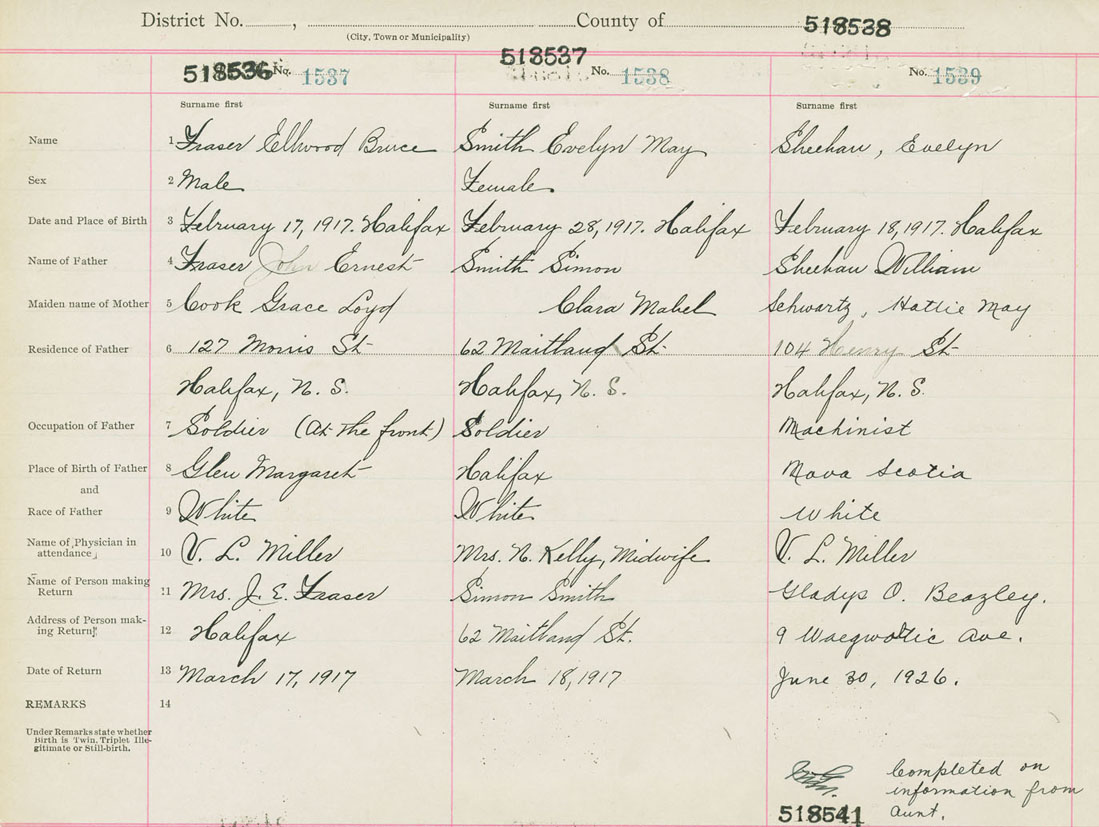 District No. , County of 518538
(City, Town or Municipality)
518536 No. 1537 518537 No. 1538 No. 1539
Surname first Surname first Surname first
Name 1 Fraser Ellwood Bruce Smith Evelyn May Sheehan, Evelyn
Sex 2 Male Female
Date and Place of Birth 3 February 17, 1917. Halifax February 28, 1917. Halifax February 18, 1917. Halifax
Name of Father 4 Fraser John Ernest Smith Simon Sheehan William
Maiden name of Mother 5 Cook Grace Loyd Clara Mabel Schwartz, Hattie May
Residence of Father 6 127 Morris St 62 Maitland St. 104 Henry St
Halifax, N. S. Halifax, N. S. Halifax, N. S.
Occupation of Father 7 Soldier (At the front) Soldier Machinist
Place of Birth of Father 8 Glen Margaret Halifax Nova Scotia
and
Race of Father 9 White White White
Name of Physician in
attendance 10 V. L. Miller Mrs. N. Kelly, Midwife V. L. Miller
Name of Person making
Return 11 Mrs. J. E. Fraser Simon Smith Gladys O. Beazley.
Address of Person mak-
ing Return 12 Halifax 62 Maitland St. 9 Waegwoltic Ave.
Date of Return 13 March 17, 1917 March 18, 1917 June 30, 1926.
REMARKS 14
Under Remarks state whether
Birth is Twin, Triplet Ille-
gitimate or Still-birth.
Completed on
information from
aunt.
518541